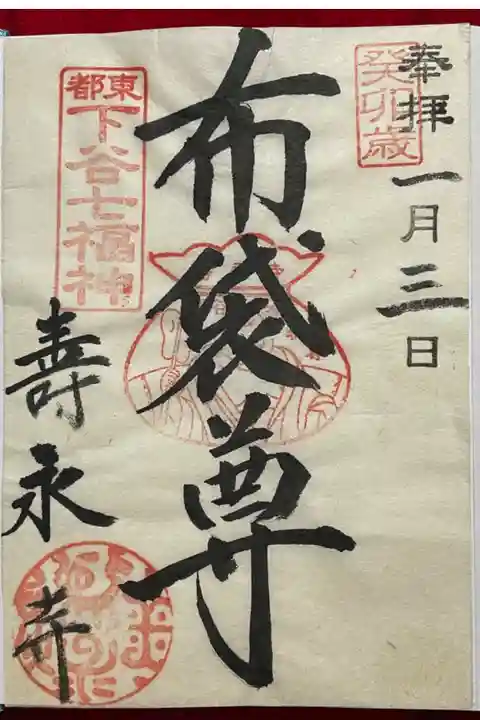 奉拝
癸卯歳
一月三日
布袋尊
東都
下谷七福神
壽永寺